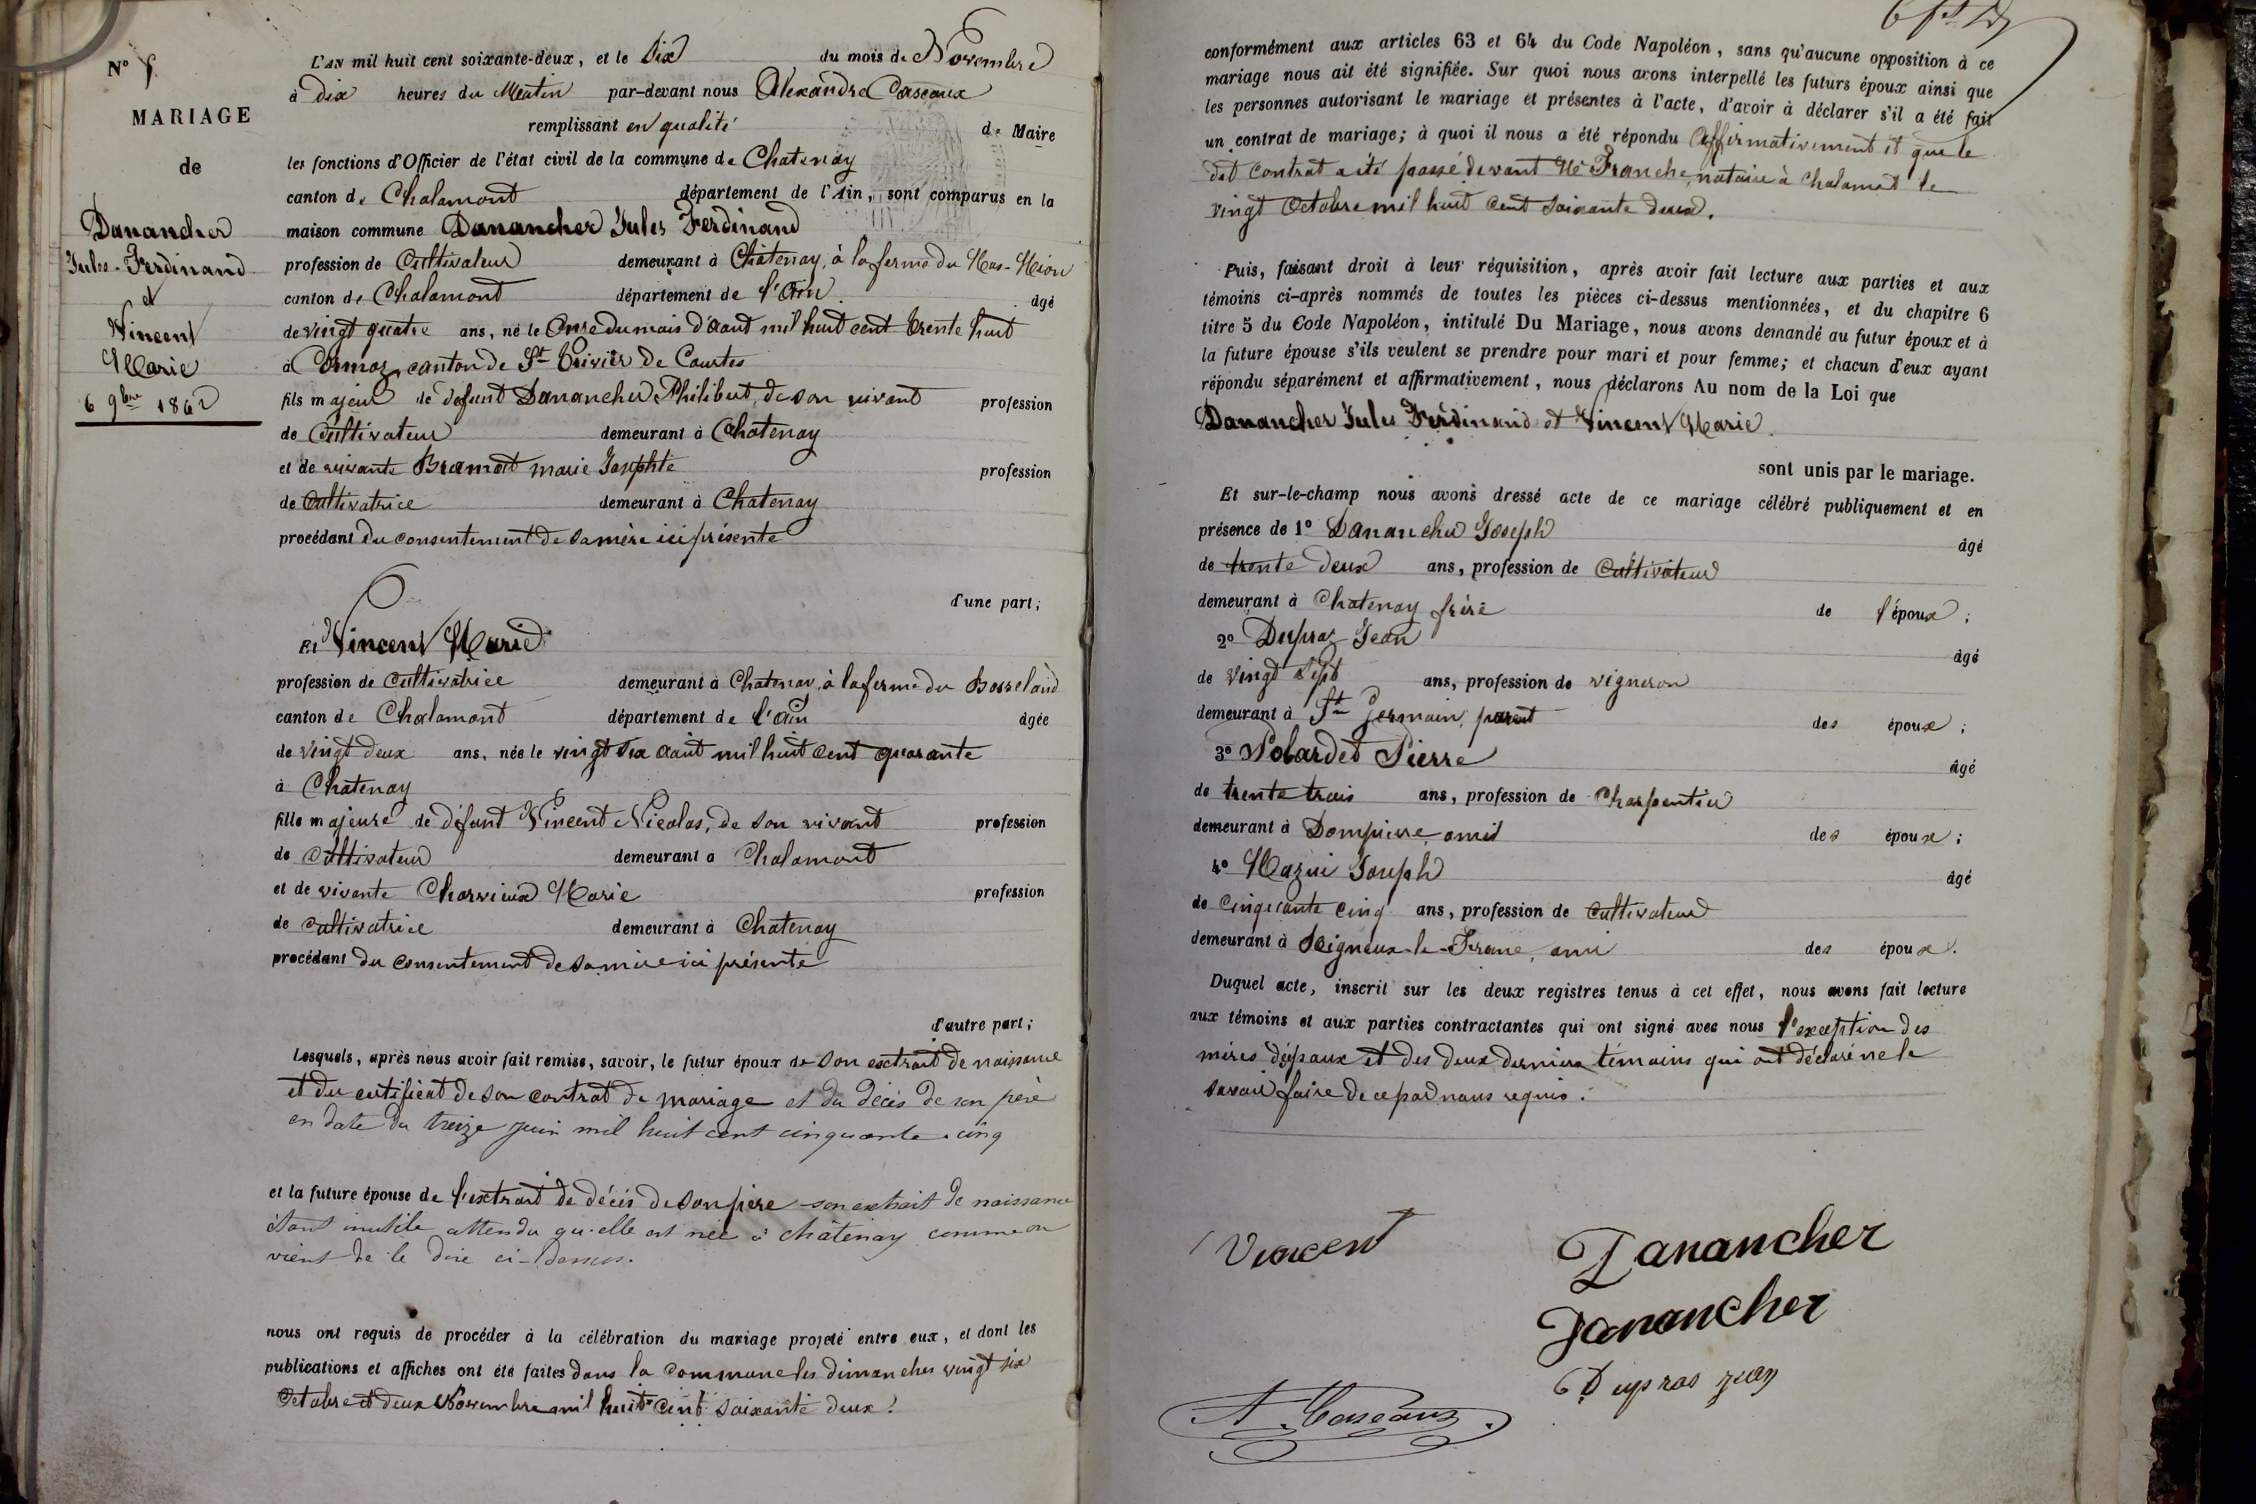 N°
MARIAGE
de
Danancher
Jules-Ferdinand
et
Vincent
Marie
6 9bre 1862
L'AN mil huit cent soixante-deux, et le Six du mois de Novembre
à dix heures du Matin par-devant nous Alexandre Caseaux
remplissant en qualité de Maire
les fonctions d'Officier de l'état civil de la commune de Chatenay
canton de Chalamont département de l'Ain, sont comparus en la
maison commune Danancher Jules Ferdinand
profession de Cultivateur demeurant à Châtenay, à la ferme du Mas-Mion
canton de Chalamont département de l'Ain. âgé
de vingt quatre ans, né le Onze du mois d'Aout mil huit cent trente huit
à Cormoz, canton de St Trivier de Courtes
fils majeur de défunt Danancher Philibert, de son vivant profession
de Cultivateur demeurant à Chatenay
et de vivante marie Josephte profession
de Cultivatrice demeurant à Chatenay
procédant du consentement de sa mère ici présente
d'une part;
Et Vincent Marie
profession de Cultivatrice demeurant à Chatenay, à la ferme du
canton de Chalamont département de l'Ain âgée
de vingt deux ans, née le vingt six Aout mil huit cent quarante
à Chatenay
fille majeure de défunt Vincent Nicolas, de son vivant profession
de Cultivateur demeurant à Chalamont
et de vivante Charvieux Marie profession
de Cultivatrice demeurant à Chatenay
procédant du consentement de sa mère ici présente
d'autre part;
Lesquels, après nous avoir fait remise, savoir, le futur époux de son extrait de naissance
et du certificat de son contrat de mariage et du décès de son père
en date du treize juin mil huit cent cinquante-cinq
et la future épouse de l'extrait de décès de son père son extrait de naissance
étant inutile attendu qu'elle est née à châtenay comme on
vient de le dire ci-dessus.
nous ont requis de procéder à la célébration du mariage projeté entre eux, et dont les
publications et affiches ont été faites dans la commune les dimanches vingt six
Octobre et deux Novembre mil huit cent soixante deux.
conformément aux articles 63 et 64 du Code Napoléon, sans qu'aucune opposition à ce
mariage nous ait été signifiée. Sur quoi nous avons interpellé les futurs époux ainsi que
les personnes autorisant le mariage et présentes à l'acte, d'avoir à déclarer s'il a été fait
un contrat de mariage; à quoi il nous a été répondu Affirmativement et que le
dit contrat a été passé devant Me Franche, notaire à Chalamont le
vingt Octobre mil huit cent soixante deux.
Puis, faisant droit à leur réquisition, après avoir fait lecture aux parties et aux
témoins ci-après nommés de toutes les pièces ci-dessus mentionnées, et du chapitre 6
titre 5 du Code Napoléon, intitulé Du Mariage, nous avons demandé au futur époux et à
la future épouse s'ils veulent se prendre pour mari et pour femme; et chacun d'eux ayant
répondu séparément et affirmativement, nous déclarons Au nom de la Loi que
Danancher Jules Ferdinand et Vincent Marie
sont unis par le mariage.
Et sur-le-champ nous avons dressé acte de ce mariage célébré publiquement et en
présence de 1° Danancher Joseph âgé
de trente deux ans, profession de Cultivateur
demeurant à Chatenay frère de l'époux;
2° Dupraz Jean âgé
de vingt sept ans, profession de vigneron
demeurant à St Germain, parent des époux;
3° Pobardet Pierre âgé
de trente trois ans, profession de Charpentier
demeurant à Dompierre, ami des époux;
4° Mazui Joseph âgé
de cinquante cinq ans, profession de Cultivateur
demeurant à Seigneux-le-Franc, ami des époux.
Duquel acte, inscrit sur les deux registres tenus à cet effet, nous avons fait lecture
aux témoins et aux parties contractantes qui ont signé avec nous l'exception des
mères d'époux et des deux derniers témoins qui ont déclaré ne le
savoir faire de ce par nous requis.
Vincent
Danancher
Danancher
Dupras jean
A. Caseaux